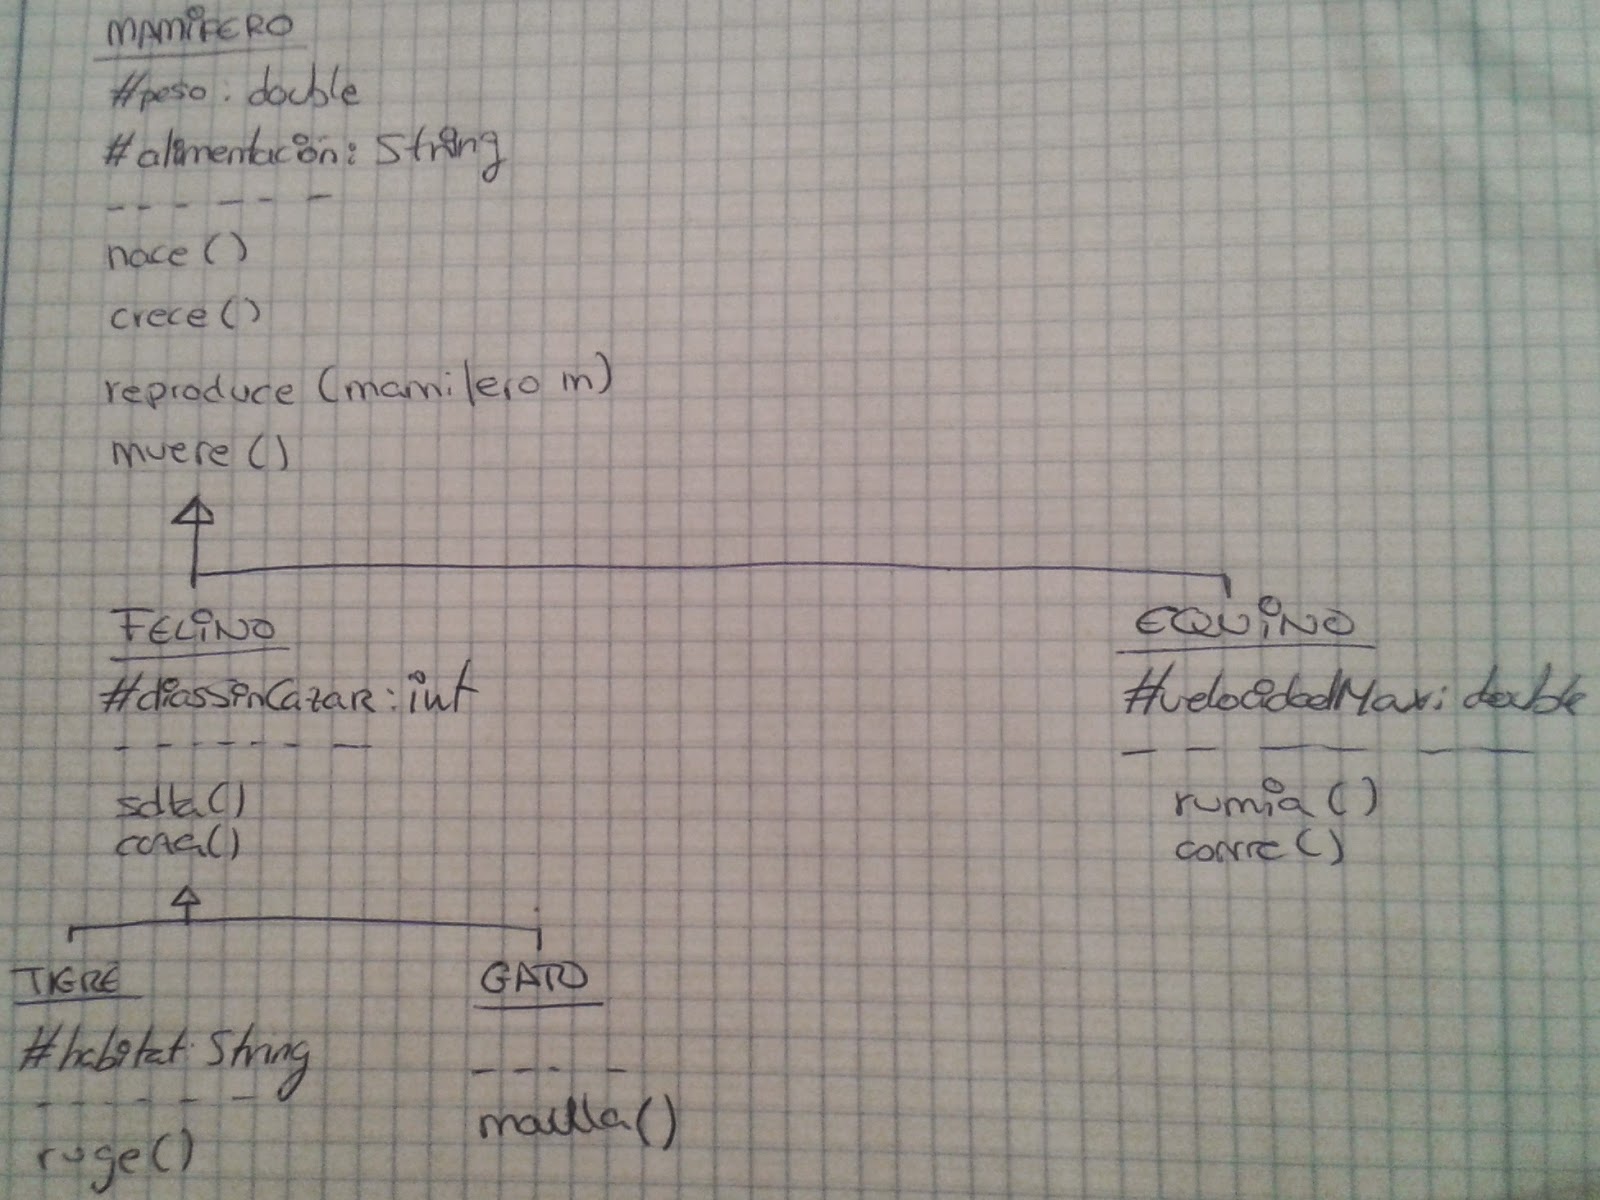 MAMIFERO
#peso: double
#alimentación: String
------
nace()
crece()
reproduce (mamifero m)
muere()
FELINO
#diassinCazar: int
-------
salta()
caza()
EQUINO
#velocidadMaxi: double
-----
rumia()
corre()
TIGRE
#habitat: String
------
ruge()
GATO
----
maulla()